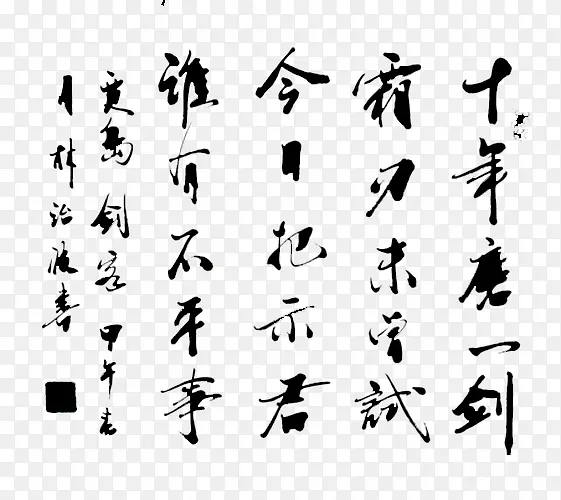 十年磨一剑
霜刃未曾試
今日把示君
谁有不平事
贾岛剑客甲午春
月林治版書